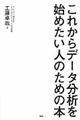 これからデータ分析を
始めたい人のための本
工藤卓哉